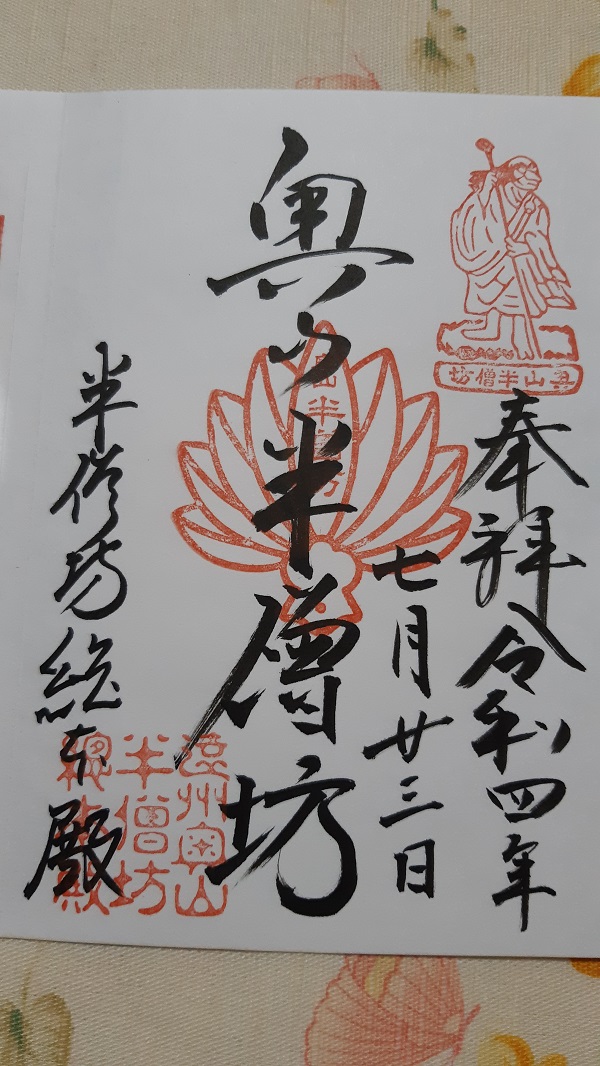 奥山半僧坊
奉拝 令和四年
七月廿三日
奥山半僧坊
半僧坊総本殿
遠州奥山
半僧坊
總本殿